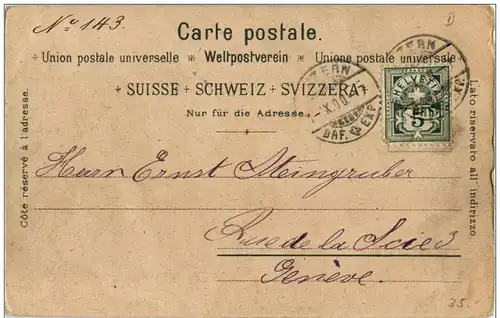 No 143.
D
Carte postale.
Union postale universelle * Weltpostverein * Unione postale universale
+ SUISSE + SCHWEIZ + SVIZZERA +
Nur für die Adresse.
Côté réservé à l'adresse.
Lato riservato all' indirizzo.
HELVETIA
5
ZERN
-X.00.-7
BRF. EXP.
ZERN
Herrn Ernst Steingruber
Rue de la Scie 3
Genève.
35.-